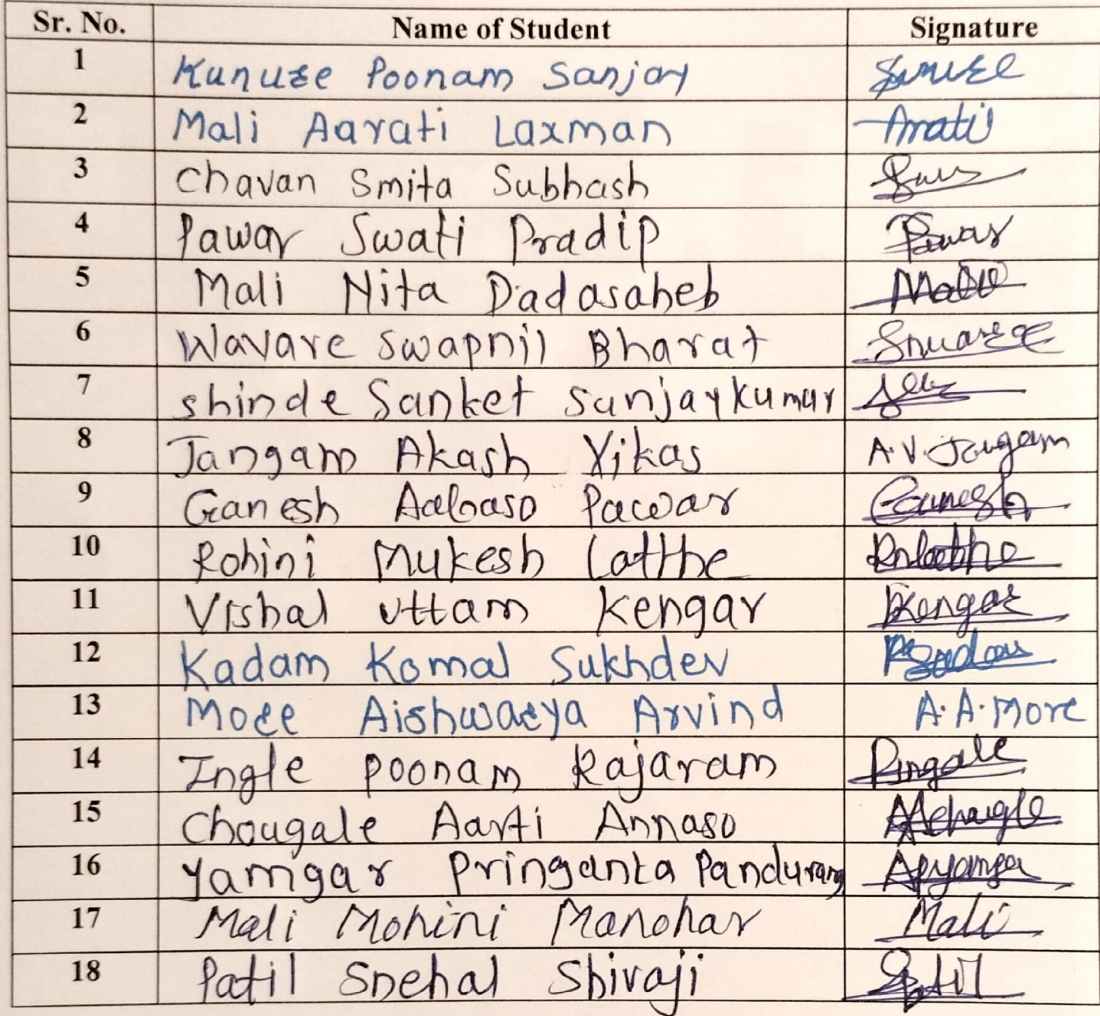 Sr. No. Name of Student Signature
1 Kunure Poonam Sanjay
2 Mali Aarati Laxman Arati
3 Chavan Smita Subhash
4 Pawar Swati Pradip Pawar
5 Mali Nita Dadasaheb Mali
6 Wavare Swapnil Bharat
7 shinde Sanket Sanjaykumar
8 Jangam Akash Vikas A.V.Jangam
9 Ganesh Aabaso Pawar Ganesh
10 Rohini Mukesh Latthe
11 Vishal Uttam Kengar Kengar
12 Kadam Komal Sukhdev
13 More Aishwarya Arvind A.A.More
14 Ingle Poonam Rajaram Pingale
15 Chougale Aarti Annaso
16 Yamgar Pringanka Pandurang
17 Mali Mohini Manohar Mali
18 Patil Snehal Shivaji